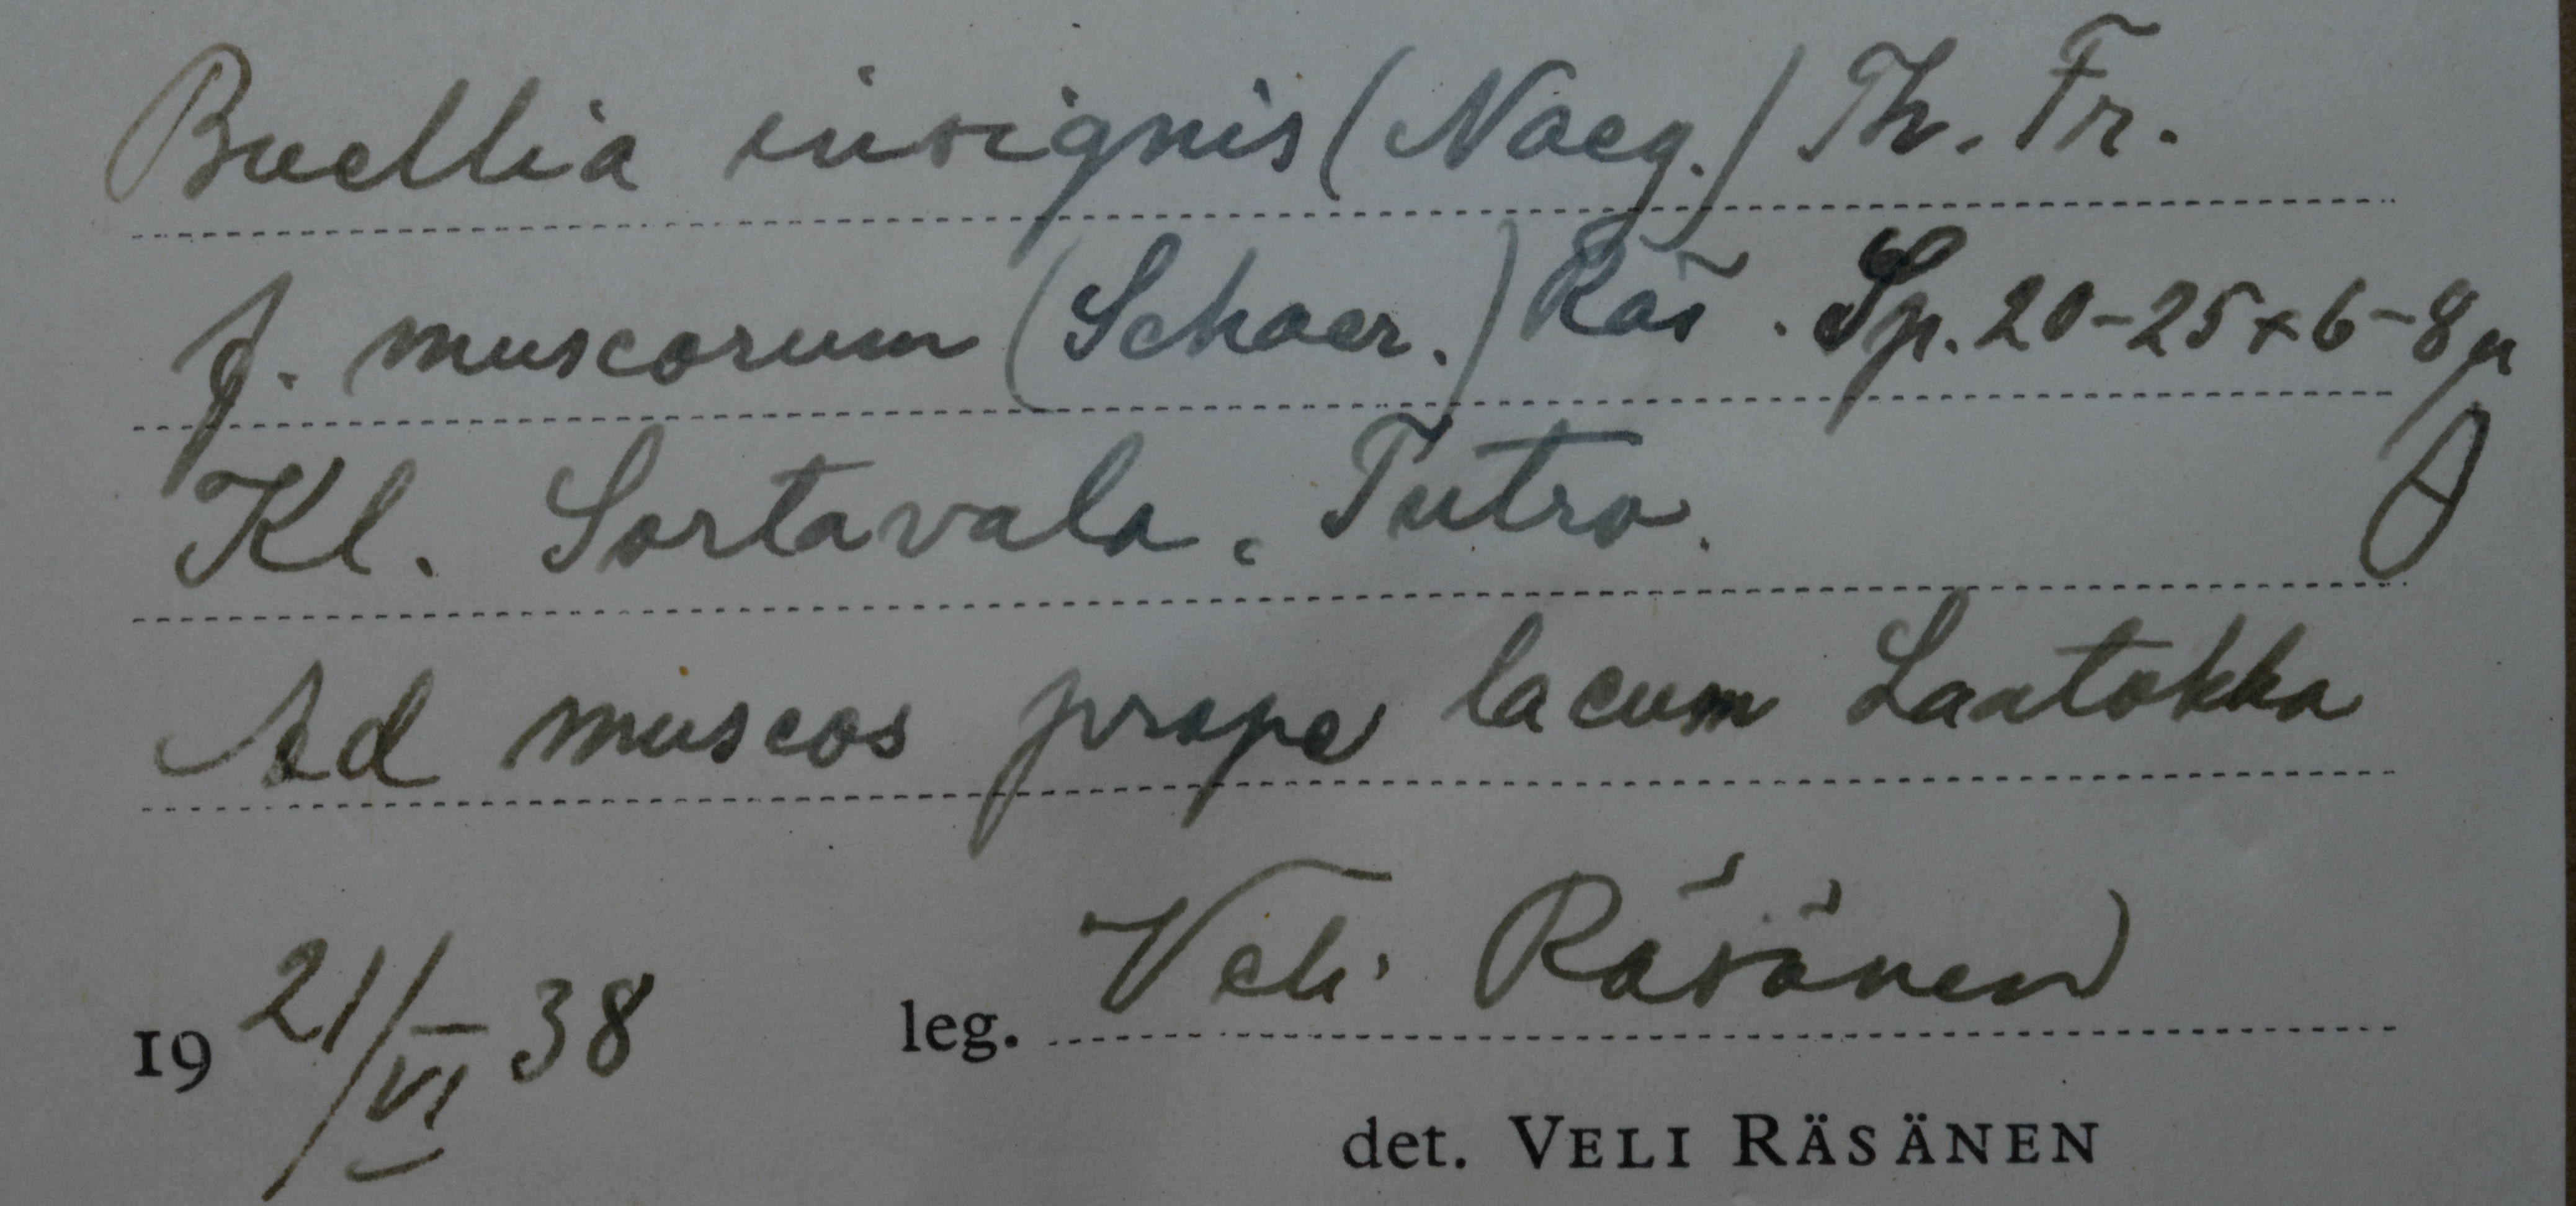 Buellia insignis (Naeg.) Th. Fr.
f. muscorum (Schaer.) Räs. Sp. 20-25×6-8 μ
Kl. Sortavala, Tutro.
Ad muscos prope lacum Laatokka
19 21/VI 38 leg. Veli Räsänen
det. VELI RÄSÄNEN